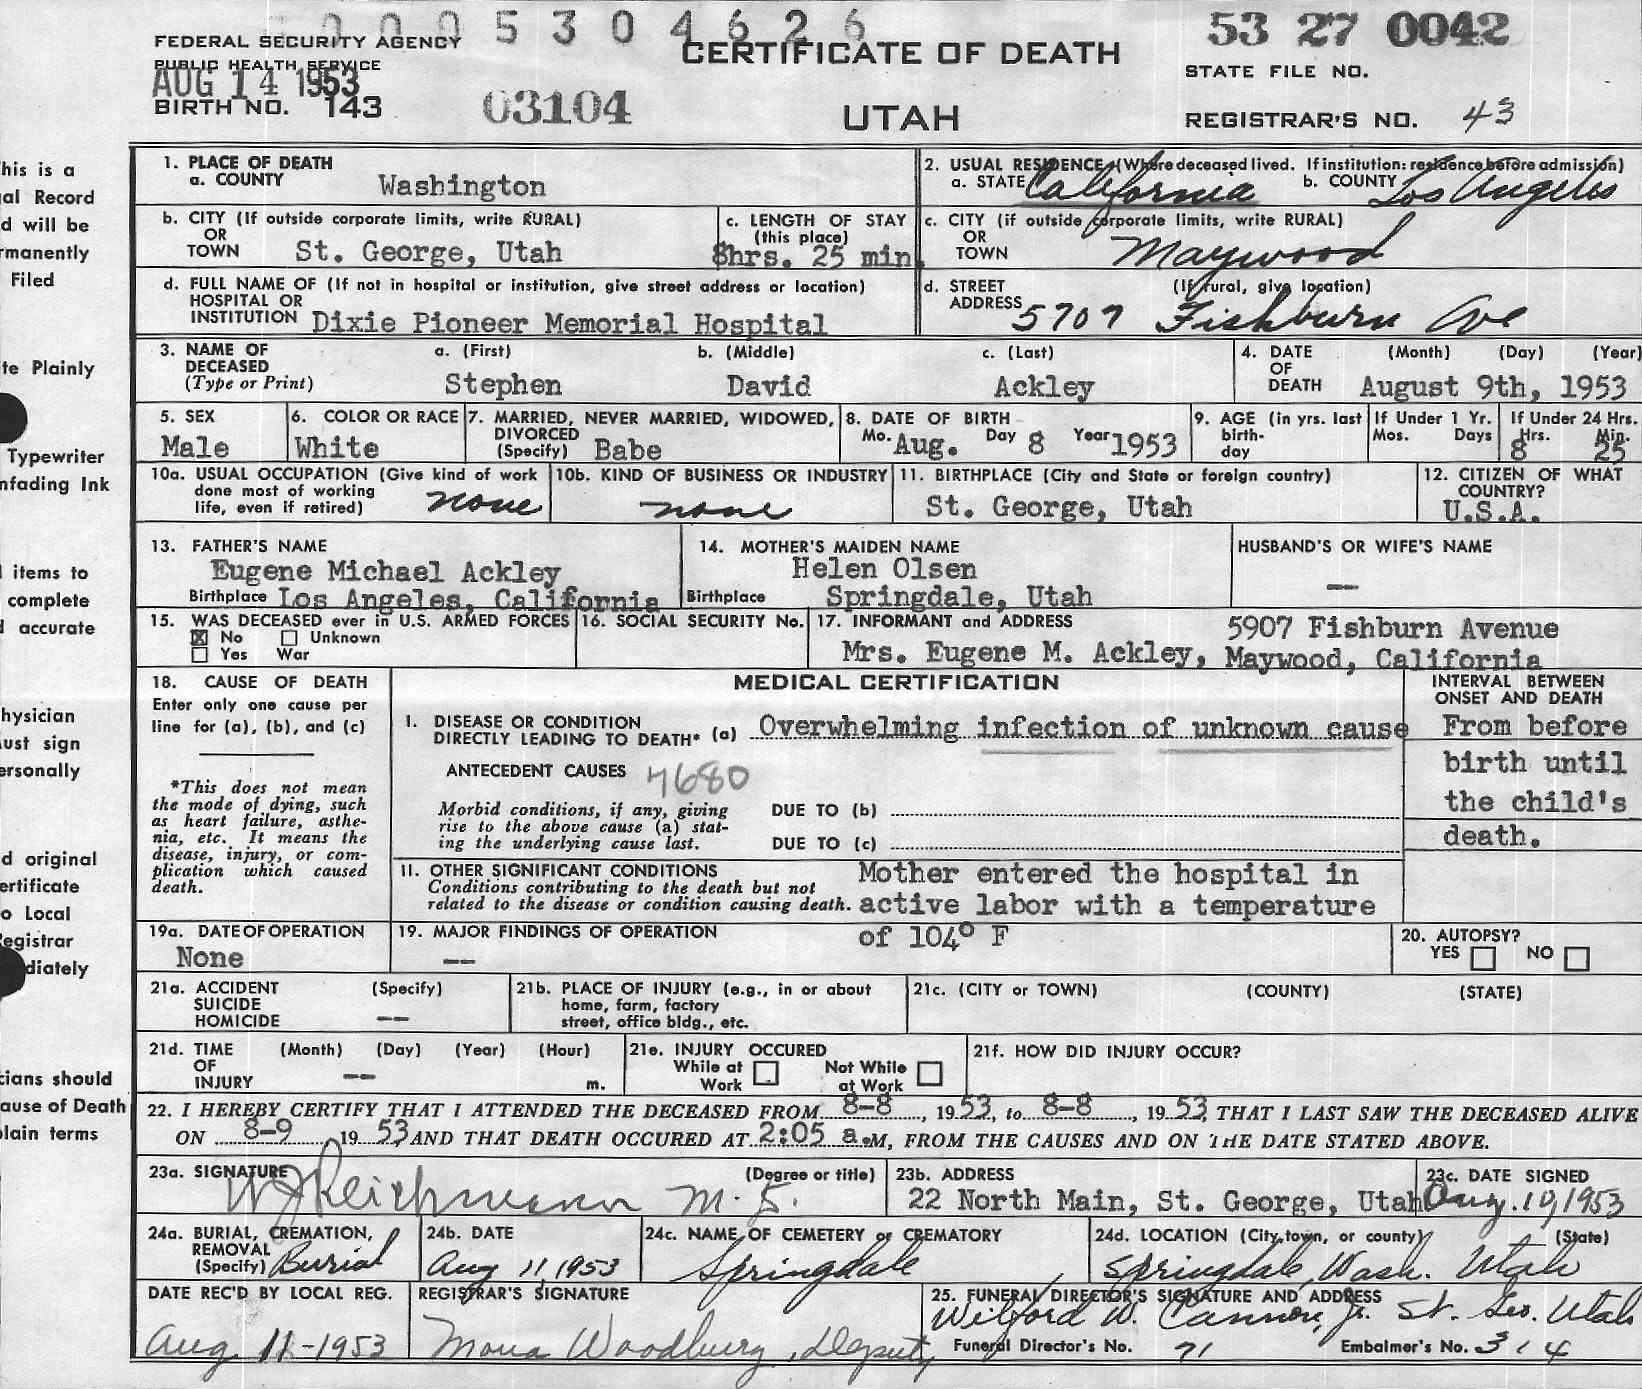 0005304626
53 27 0042
FEDERAL SECURITY AGENCY
PUBLIC HEALTH SERVICE
AUG 14 1953
BIRTH NO. 143
03104
CERTIFICATE OF DEATH
UTAH
STATE FILE NO.
REGISTRAR'S NO. 43
his is a
al Record
d will be
rmanently
Filed
te Plainly
Typewriter
nfading Ink
items to
complete
accurate
hysician
ust sign
ersonally
d original
ertificate
o Local
egistrar
diately
cians should
ause of Death
lain terms
1. PLACE OF DEATH
a. COUNTY Washington
2. USUAL RESIDENCE (Where deceased lived. If institution: residence before admission)
a. STATE California b. COUNTY Los Angeles
b. CITY (If outside corporate limits, write RURAL)
OR
TOWN St. George, Utah
c. LENGTH OF STAY
(this place)
8hrs. 25 min.
c. CITY (if outside corporate limits, write RURAL)
OR
TOWN Maywood
d. FULL NAME OF (If not in hospital or institution, give street address or location)
HOSPITAL OR
INSTITUTION Dixie Pioneer Memorial Hospital
d. STREET (If rural, give location)
ADDRESS 5707 Fishburn Ave
3. NAME OF a. (First) b. (Middle) c. (Last)
DECEASED
(Type or Print) Stephen David Ackley
4. DATE (Month) (Day) (Year)
OF
DEATH August 9th, 1953
5. SEX
Male
6. COLOR OR RACE
White
7. MARRIED, NEVER MARRIED, WIDOWED,
DIVORCED
(Specify) Babe
8. DATE OF BIRTH
Mo. Aug. Day 8 Year 1953
9. AGE (in yrs. last
birth-
day
If Under 1 Yr.
Mos. Days
If Under 24 Hrs.
Hrs. Min.
8 25
10a. USUAL OCCUPATION (Give kind of work
done most of working
life, even if retired) none
10b. KIND OF BUSINESS OR INDUSTRY
none
11. BIRTHPLACE (City and State or foreign country)
St. George, Utah
12. CITIZEN OF WHAT
COUNTRY?
U.S.A.
13. FATHER'S NAME
Eugene Michael Ackley
Birthplace Los Angeles, California
14. MOTHER'S MAIDEN NAME
Helen Olsen
Birthplace Springdale, Utah
HUSBAND'S OR WIFE'S NAME
—
15. WAS DECEASED ever in U.S. ARMED FORCES
☒ No ☐ Unknown
☐ Yes War
16. SOCIAL SECURITY No.
17. INFORMANT and ADDRESS 5907 Fishburn Avenue
Mrs. Eugene M. Ackley, Maywood, California
18. CAUSE OF DEATH
Enter only one cause per
line for (a), (b), and (c)
*This does not mean
the mode of dying, such
as heart failure, asthe-
nia, etc. It means the
disease, injury, or com-
plication which caused
death.
MEDICAL CERTIFICATION
I. DISEASE OR CONDITION
DIRECTLY LEADING TO DEATH* (a) Overwhelming infection of unknown cause
ANTECEDENT CAUSES 7680
Morbid conditions, if any, giving
rise to the above cause (a) stat-
ing the underlying cause last.
DUE TO (b)
DUE TO (c)
INTERVAL BETWEEN
ONSET AND DEATH
From before
birth until
the child's
death.
II. OTHER SIGNIFICANT CONDITIONS
Conditions contributing to the death but not
related to the disease or condition causing death.
Mother entered the hospital in
active labor with a temperature
of 104° F
19a. DATE OF OPERATION
None
19. MAJOR FINDINGS OF OPERATION
--
20. AUTOPSY?
YES ☐ NO ☐
21a. ACCIDENT (Specify)
SUICIDE
HOMICIDE --
21b. PLACE OF INJURY (e.g., in or about
home, farm, factory
street, office bldg., etc.
21c. (CITY or TOWN) (COUNTY) (STATE)
21d. TIME (Month) (Day) (Year) (Hour)
OF
INJURY -- m.
21e. INJURY OCCURED
While at Work ☐ Not While at Work ☐
21f. HOW DID INJURY OCCUR?
22. I HEREBY CERTIFY THAT I ATTENDED THE DECEASED FROM 8-8, 1953, to 8-8, 1953 THAT I LAST SAW THE DECEASED ALIVE
ON 8-9 1953 AND THAT DEATH OCCURED AT 2:05 a.M, FROM THE CAUSES AND ON THE DATE STATED ABOVE.
23a. SIGNATURE (Degree or title)
W J Reichmann M. D.
23b. ADDRESS
22 North Main, St. George, Utah
23c. DATE SIGNED
Aug. 10, 1953
24a. BURIAL, CREMATION,
REMOVAL
(Specify) Burial
24b. DATE
Aug 11, 1953
24c. NAME OF CEMETERY or CREMATORY
Springdale
24d. LOCATION (City, town, or county) (State)
Springdale, Wash. Utah
DATE REC'D BY LOCAL REG.
Aug 11-1953
REGISTRAR'S SIGNATURE
Mona Woodbury, Deputy
25. FUNERAL DIRECTOR'S SIGNATURE AND ADDRESS
Wilford W. Cannon, Jr. St. Geo. Utah
Funeral Director's No. 71 Embalmer's No. 314